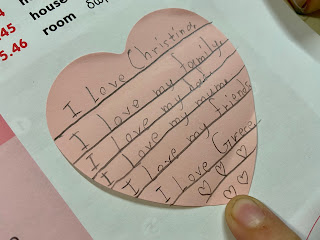 45
5.46
house
room δωμ
I Love Christina.
I Love my family
I Love my dad.
I Love my mum.
I Love my friends
I Love Greece